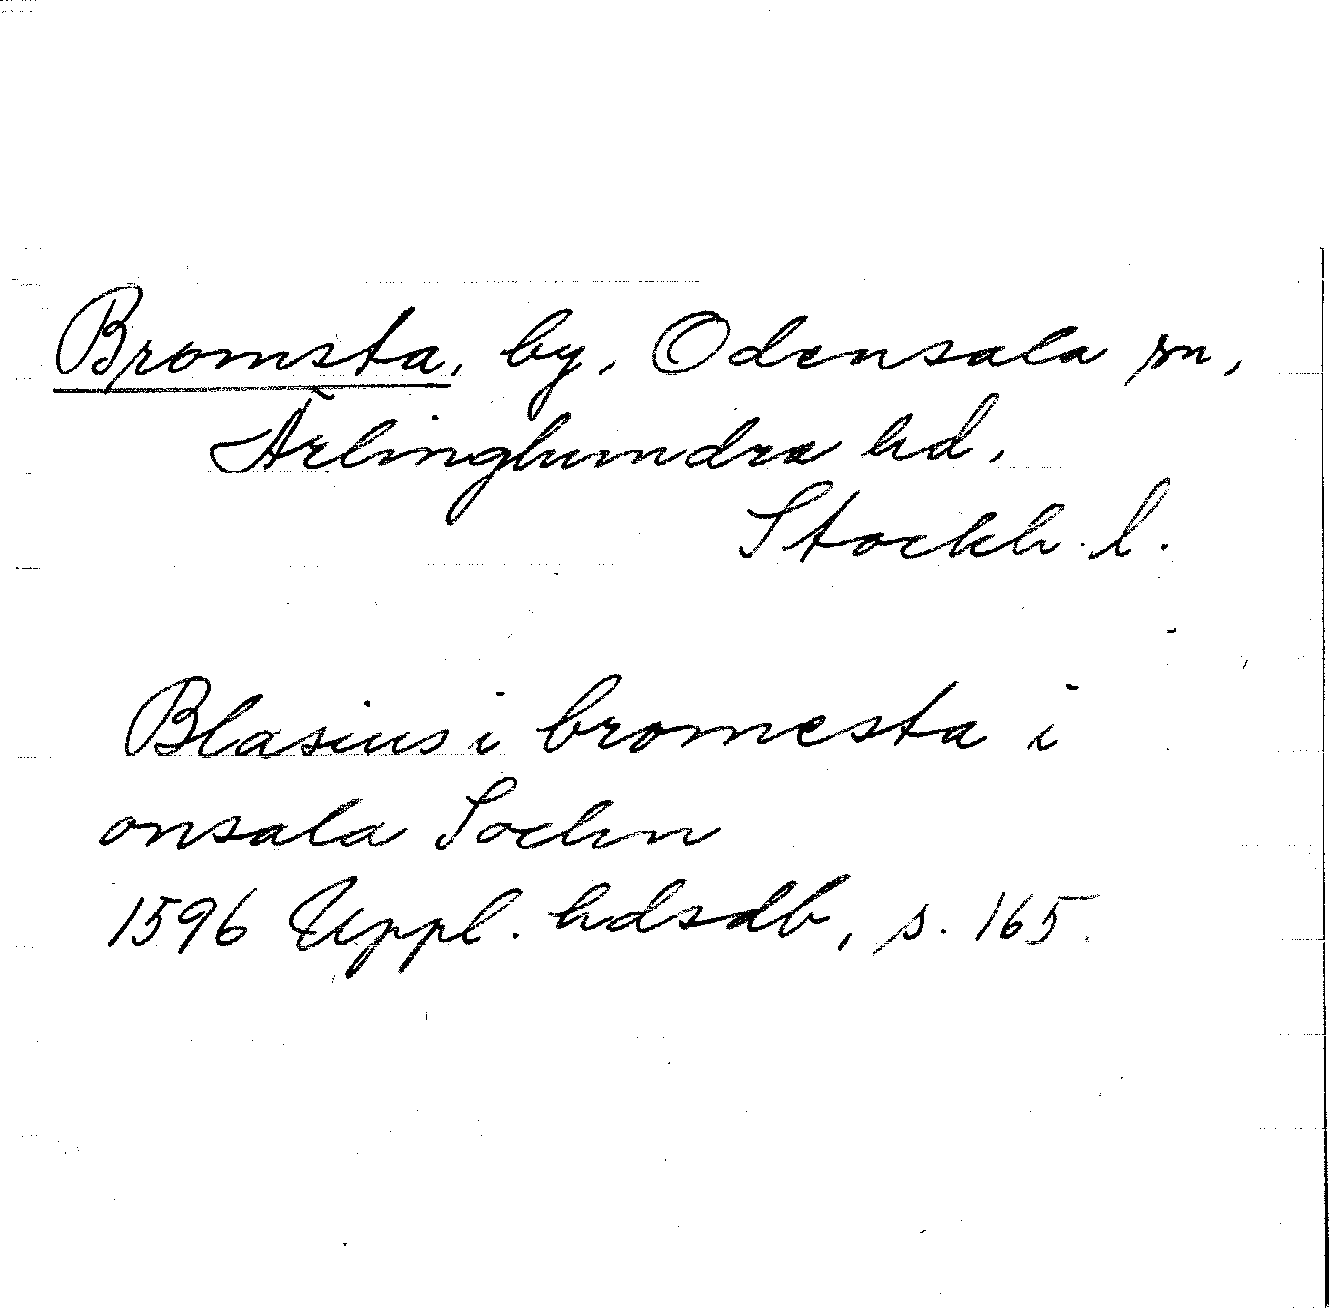 Bromsta, by, Odensala sn,
Ärlinghundra hd,
Stockh. l.
Blasius i bromesta i
onsala Sochn
1596 Uppl. hdsdb, s. 165.